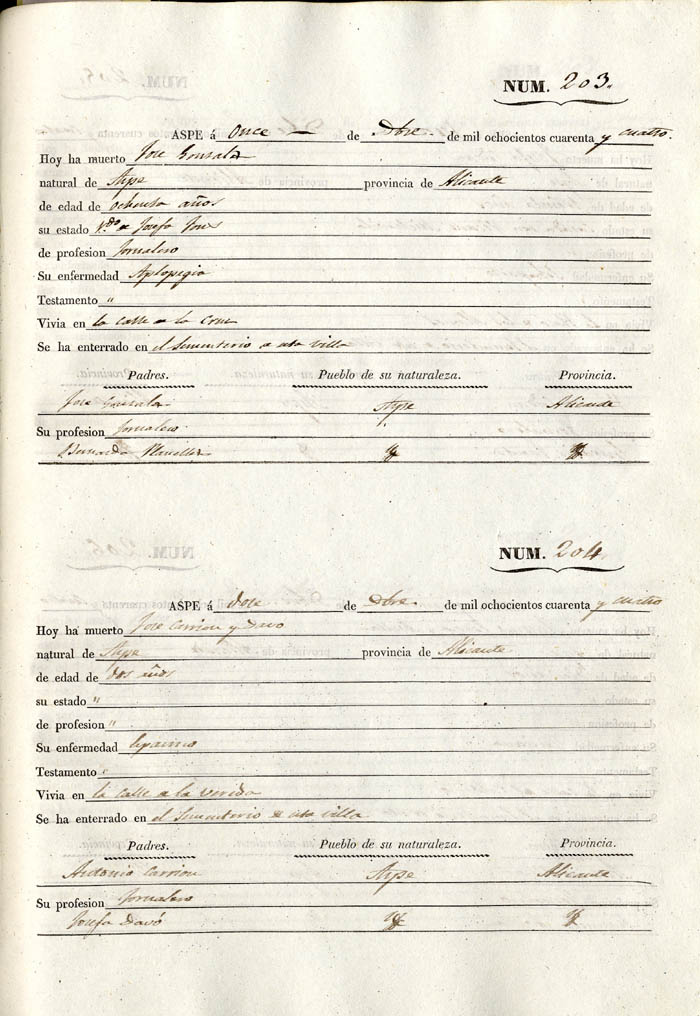 NUM. 203.
ASPE á Once de Dbre. de mil ochocientos cuarenta y cuatro.
Hoy ha muerto Jose Gonzalez
natural de Aspe provincia de Alicante
de edad de ochenta años
su estado V.do de Josefa
de profesion Jornalero
Su enfermedad Aplopegia
Testamento "
Vivia en la calle de la Cruz
Se ha enterrado en el Sementerio de esta villa
Padres. Pueblo de su naturaleza. Provincia.
Jose Gonzalez Aspe Alicante
Su profesion Jornalero
Bernarda
NUM. 204.
ASPE á doce de Dbre. de mil ochocientos cuarenta y cuatro
Hoy ha muerto Jose Carrion y Davó
natural de Aspe provincia de Alicante
de edad de dos años
su estado "
de profesion "
Su enfermedad
Testamento "
Vivia en la calle de la
Se ha enterrado en el Sementerio de esta villa
Padres. Pueblo de su naturaleza. Provincia.
Antonio Carrion Aspe Alicante
Su profesion Jornalero
Josefa Davó